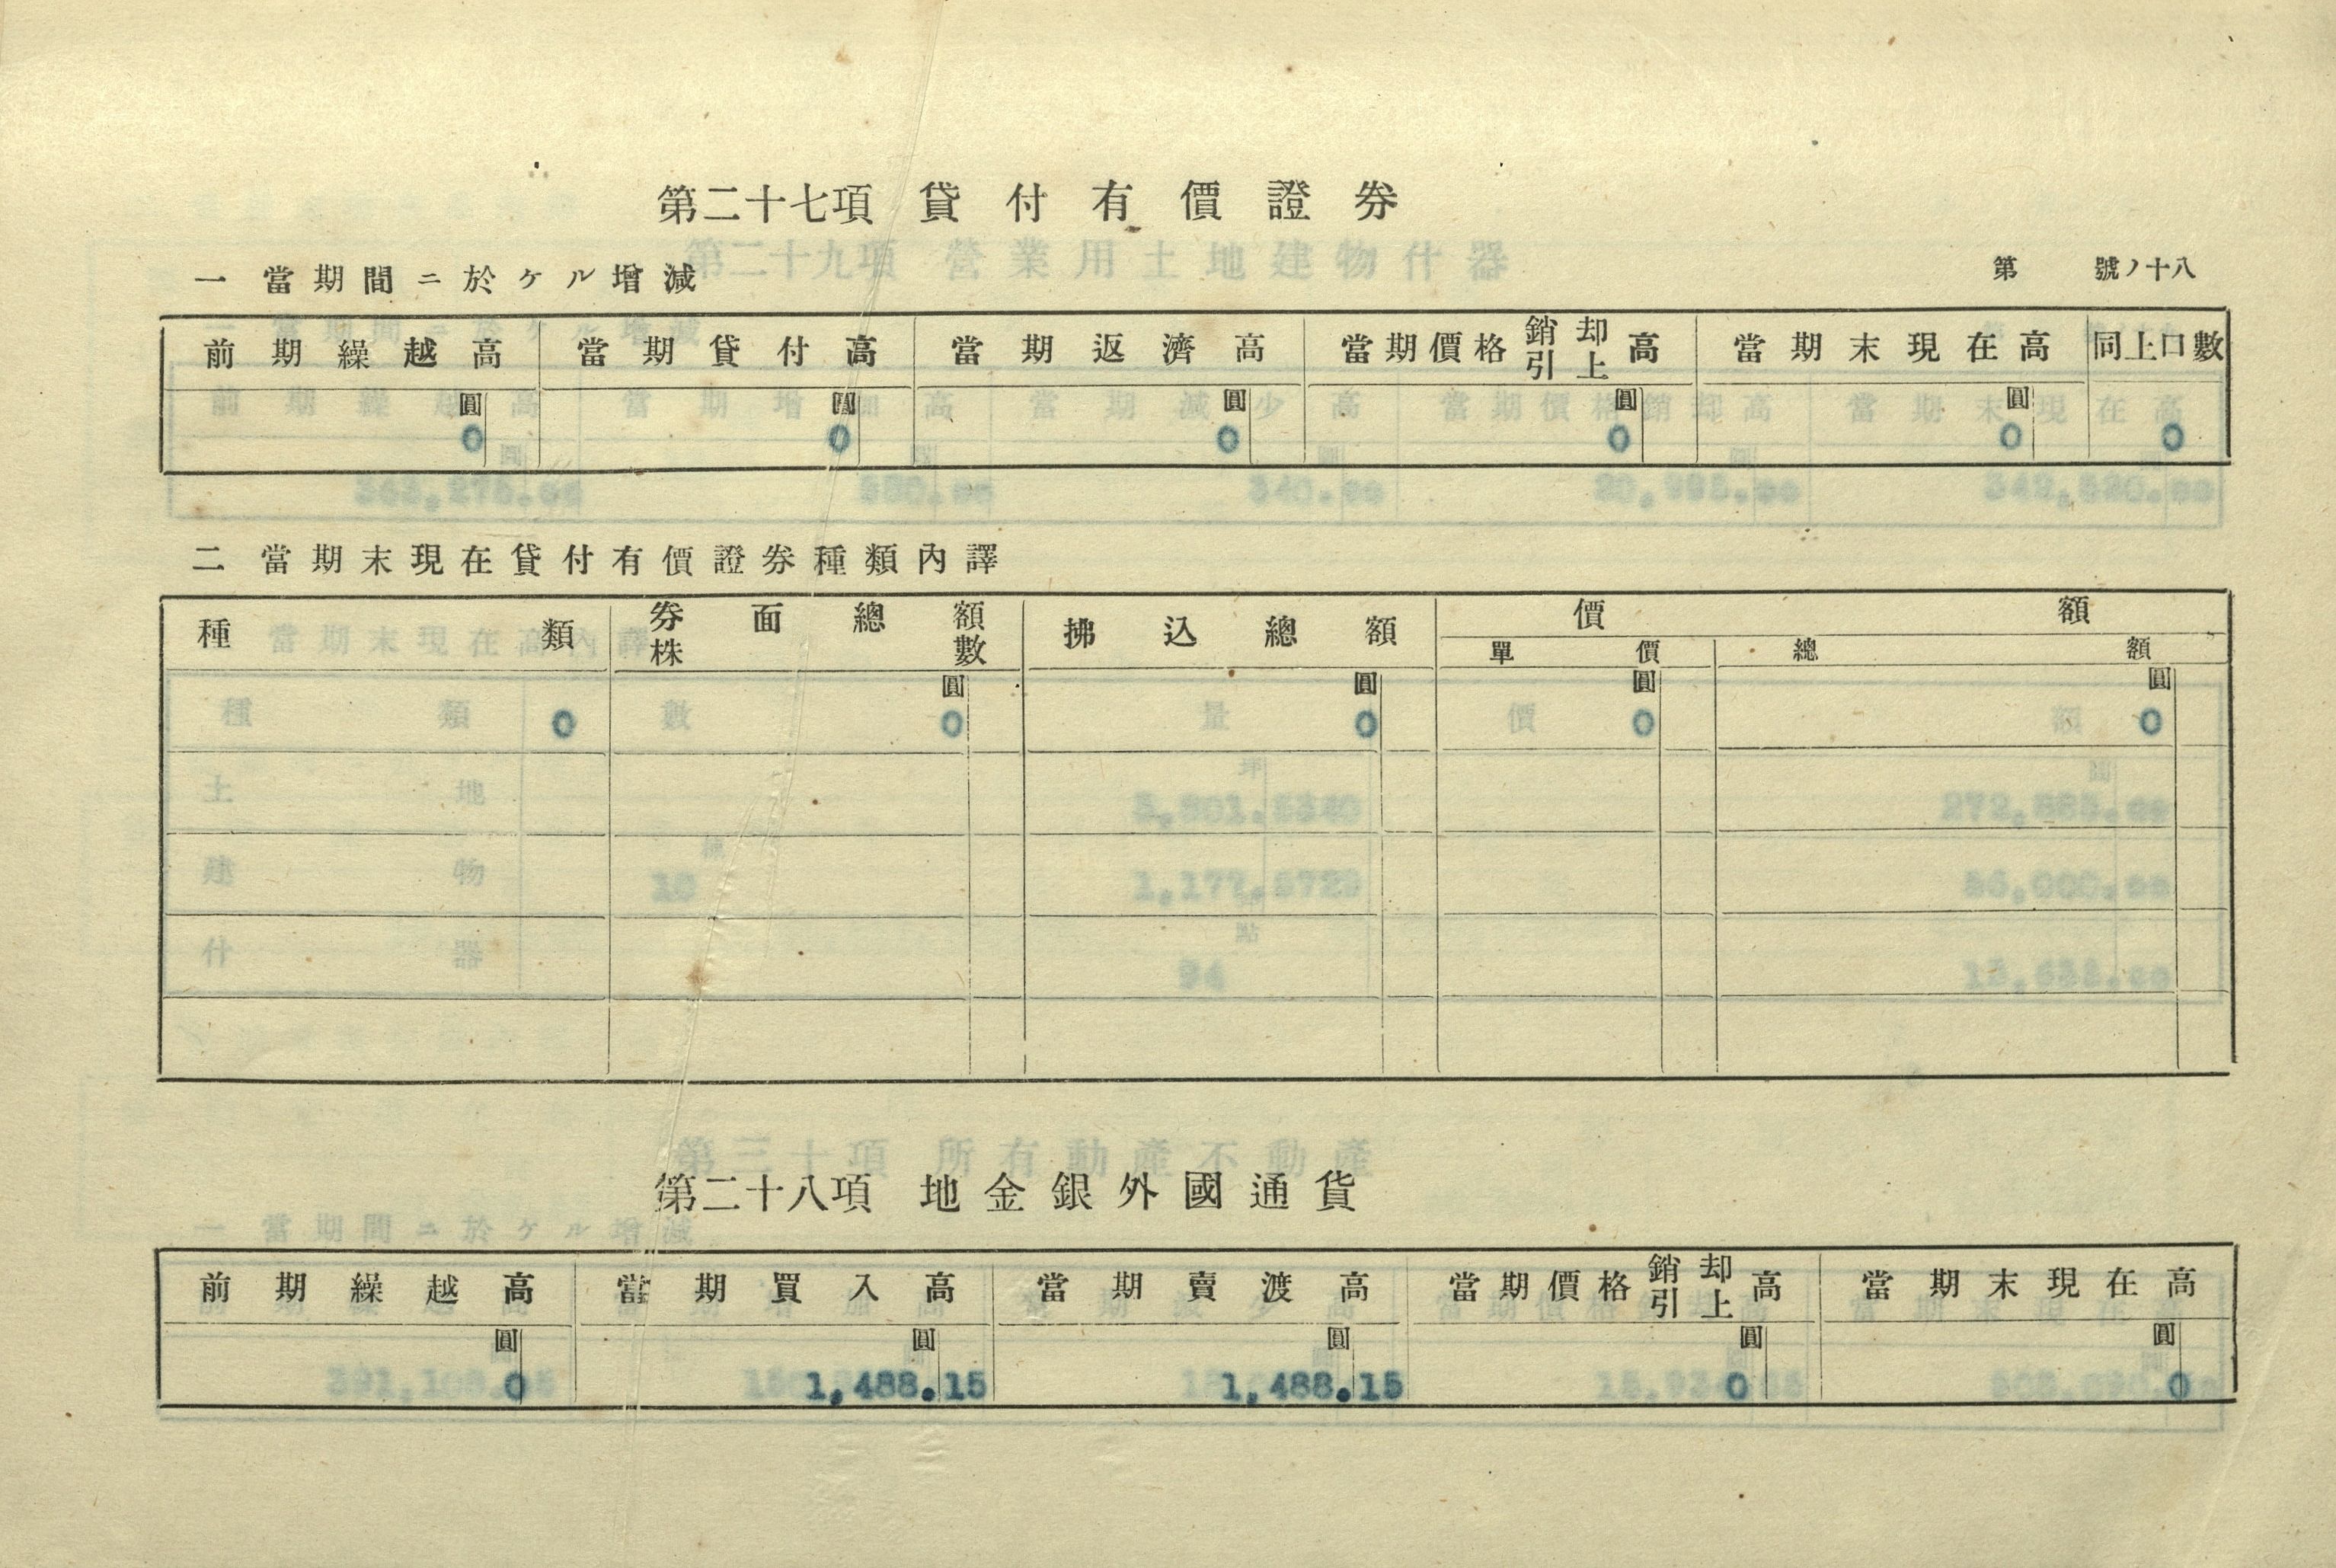 第二十七項 貸付有價證券
一 當期間ニ於ケル增減
第 號ノ十八
前期繰越高 當期貸付高 當期返濟高 當期價格銷却引上高 當期末現在高 同上口數
圓 圓 圓 圓 圓
0 0 0 0 0 0
二 當期末現在貸付有價證券種類內譯
種類 券面總額 株數 拂込總額 價額
單價 總額
圓 圓 圓 圓
0 0 0 0 0
第二十八項 地金銀外國通貨
前期繰越高 當期買入高 當期賣渡高 當期價格銷却引上高 當期末現在高
圓 圓 圓 圓 圓
0 1,488.15 1,488.15 0 0